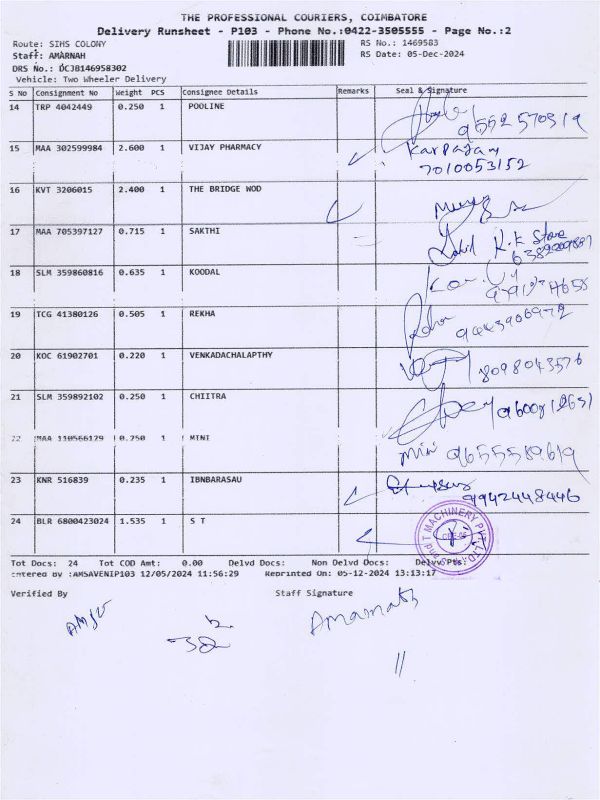 THE PROFESSIONAL COURIERS, COIMBATORE
Delivery Runsheet - P103 - Phone No.:0422-3505555 - Page No.:2
Route: SIHS COLONY RS No.: 1469583
Staff: AMARNAH RS Date: 05-Dec-2024
DRS No.: DCJB146958302
Vehicle: Two Wheeler Delivery
S No Consignment No Weight PCS Consignee Details Remarks Seal & Signature
14 TRP 4042449 0.250 1 POOLINE
96552570519
15 MAA 302599984 2.600 1 VIJAY PHARMACY Karpagam
7010053152
16 KVT 3206015 2.400 1 THE BRIDGE WOD
17 MAA 705397127 0.715 1 SAKTHI K.K Store
18 SLM 359860816 0.635 1 KOODAL
19 TCG 41380126 0.505 1 REKHA
9443906972
20 KOC 61902701 0.220 1 VENKADACHALAPTHY
8098043576
21 SLM 359892102 0.250 1 CHIITRA
22 MAA 110566129 0.750 1 MINI
Mini 9655589619
23 KNR 516839 0.235 1 IBNBARASAU
9942448446
24 BLR 6800423024 1.535 1 S T
MACHINERY PVT. LTD.
Tot Docs: 24 Tot COD Amt: 0.00 Delvd Docs: Non Delvd Docs: Delvd Pts:
Entered By :AMSAVENIP103 12/05/2024 11:56:29 Reprinted On: 05-12-2024 13:13:17
Verified By Staff Signature
Amarnath